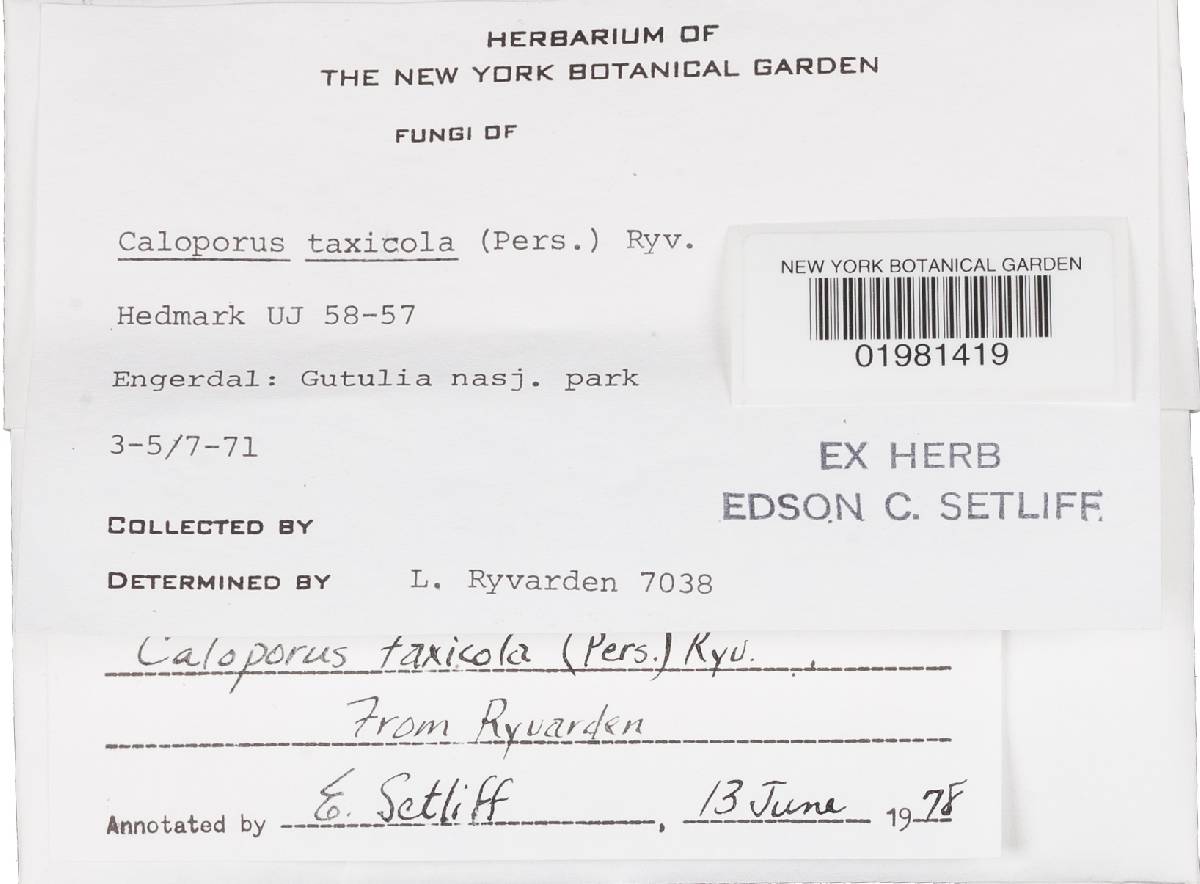 HERBARIUM OF
THE NEW YORK BOTANICAL GARDEN
FUNGI OF
Caloporus taxicola (Pers.) Ryv.
Hedmark UJ 58-57
Engerdal: Gutulia nasj. park
3-5/7-71
NEW YORK BOTANICAL GARDEN
01981419
EX HERB
EDSON C. SETLIFF
COLLECTED BY
DETERMINED BY L. Ryvarden 7038
Caloporus taxicola (Pers.) Ryv.
From Ryvarden
Annotated by E. Setliff, 13 June 1978